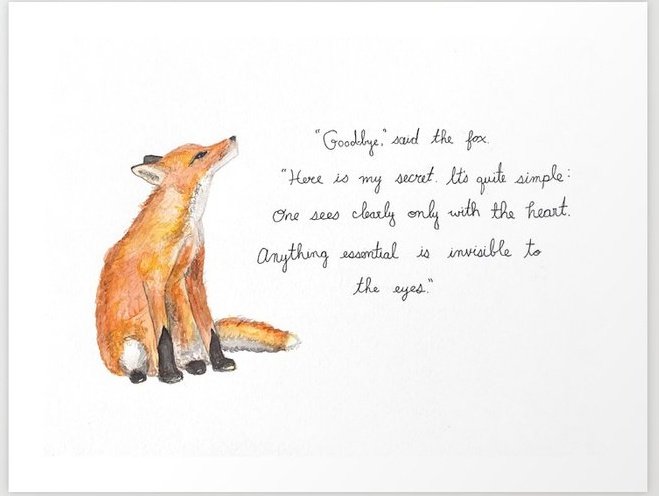 "Goodbye," said the fox.
"Here is my secret. It's quite simple:
One sees clearly only with the heart.
Anything essential is invisible to
the eyes."